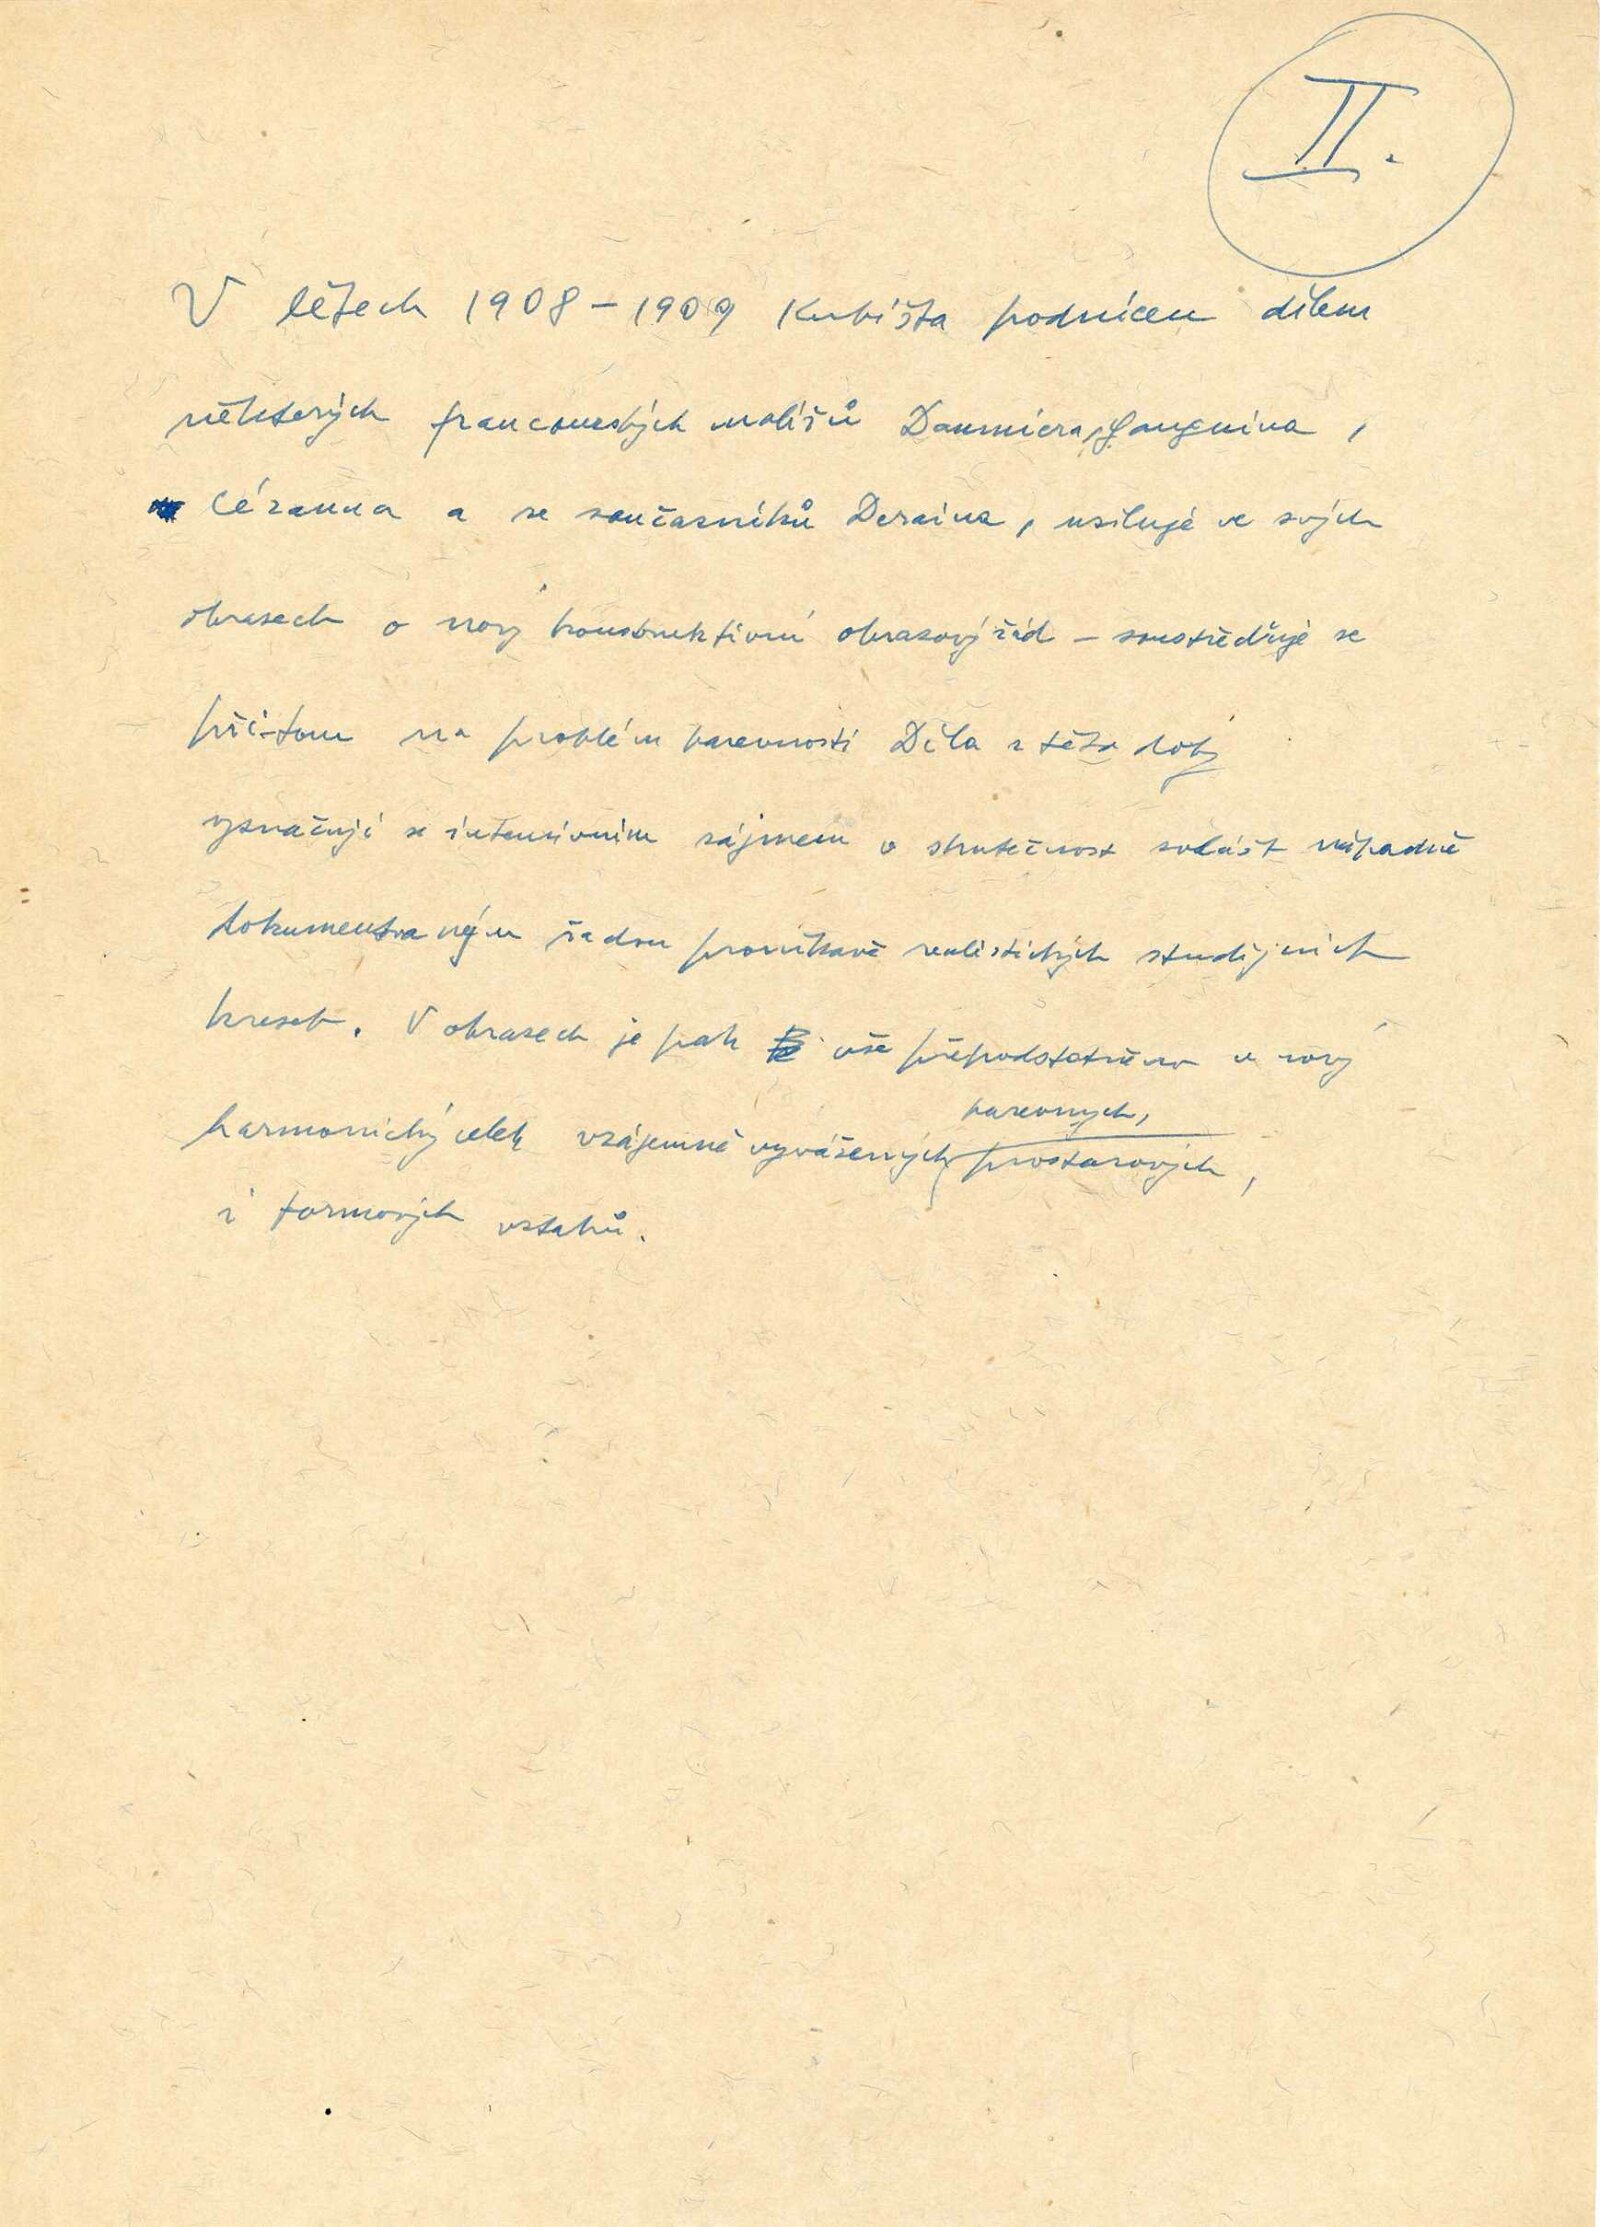 II.
V létech 1908-1909 Kubišta podnícen dílem
některých francouzských malířů Daumiera, Gauguina,
Cézanna a ze současníků Deraina, usiluje ve svých
obrazech o nový konstruktivní obrazový řád - soustřeďuje se
při-tom na problém barevnosti Díla z této doby
vyznačují se intensivním zájmem o skutečnost zvlášť nápadně
dokumentovaným řadou pronikavě realistických studijních
kreseb. V obrazech je pak vše přepodstatněno v nový
barevných,
harmonický celek vzájemně vyvážených prostorových,
i formových vztahů.